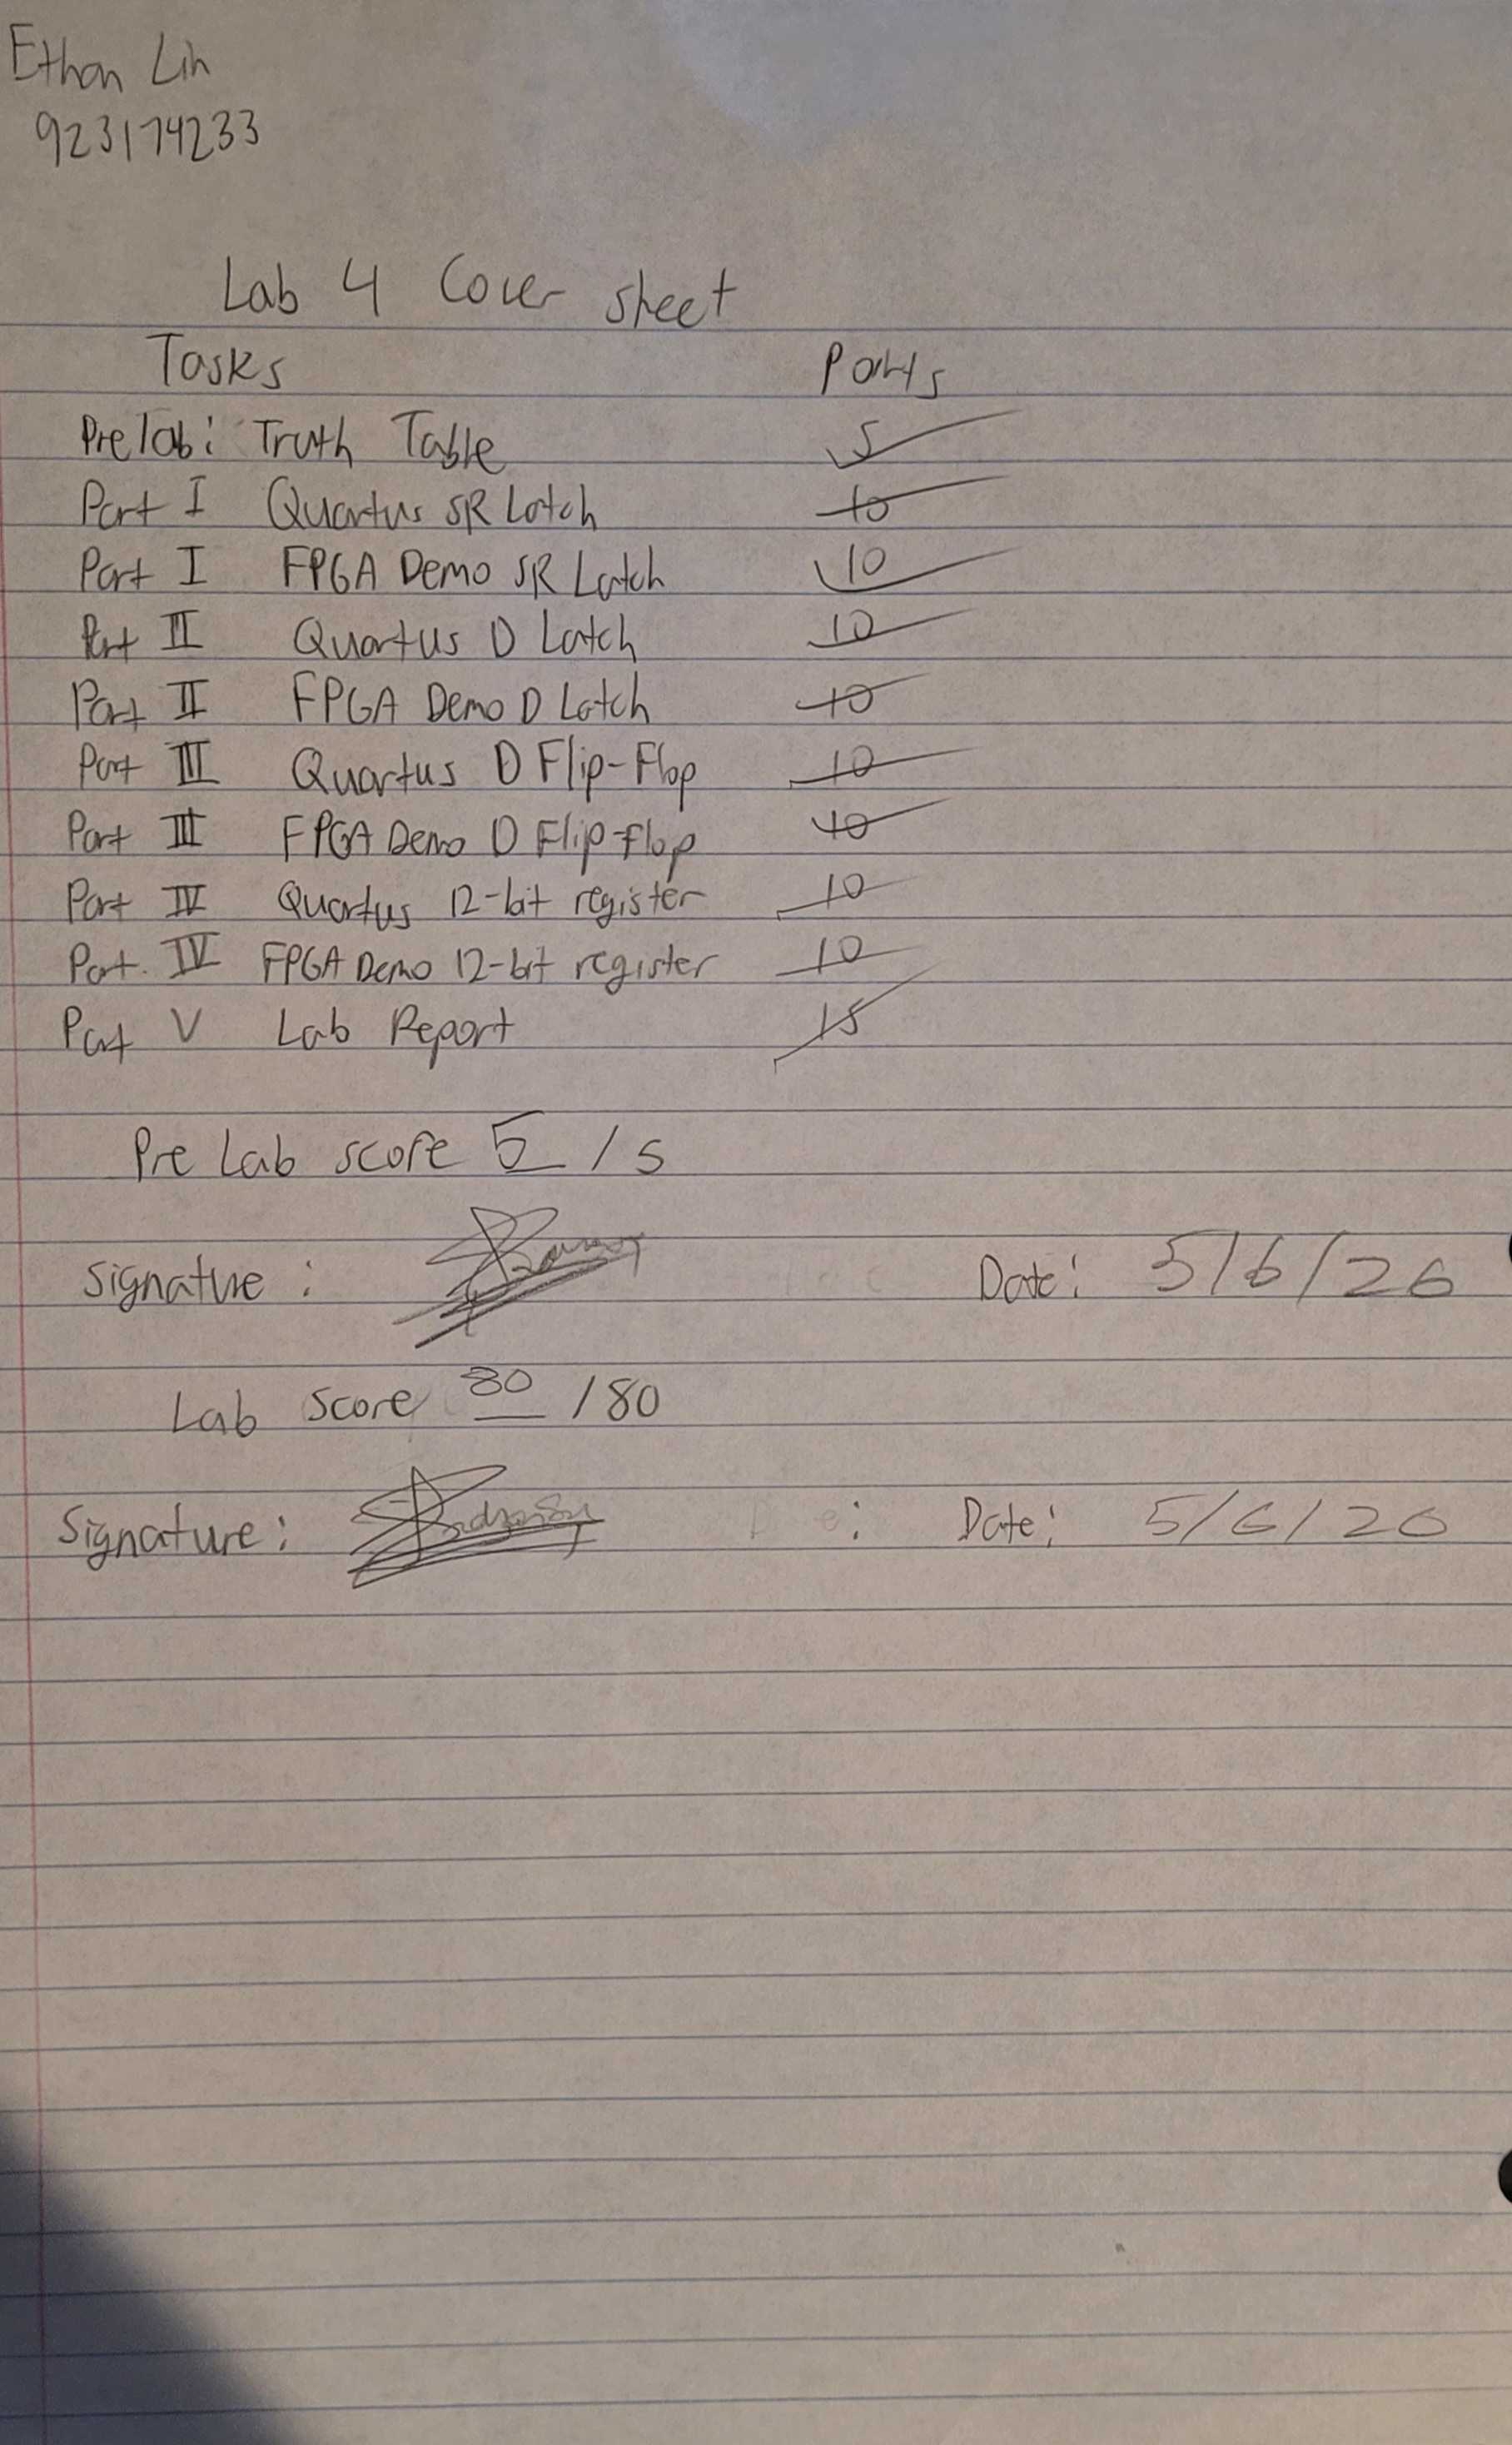 Ethan Lin
923174233
Lab 4 Cover sheet
Tasks Points
Prelab: Truth Table 5
Part I Quartus SR Latch 10
Part I FPGA Demo SR Latch 10
Part II Quartus D Latch 10
Part II FPGA Demo D Latch 10
Part III Quartus D Flip-Flop 10
Part III FPGA Demo D Flip-flop 10
Part IV Quartus 12-bit register 10
Part. IV FPGA Demo 12-bit register 10
Part V Lab Report 15
Pre Lab score 5 / 5
Signature : Date: 5/6/26
Lab Score 80 /80
Signature: : Date: 5/6/26